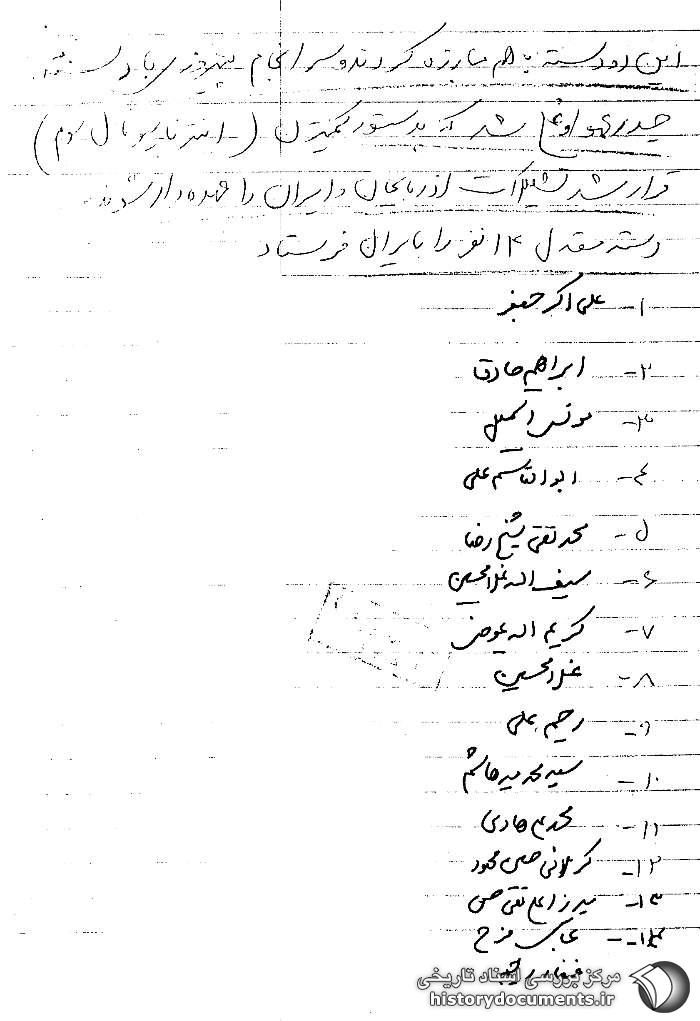 این دو دسته با هم مبارزه کردند و سرانجام پیروزی با دسته
حیدر عمو اوغلی شد که بدستور کمیترن (انترناسیونال سوم)
قرار شد تشکیلات اذربایجان و ایران را عهده دار شوند
دسته 14 نفر را بایران فرستاد
1- علی اکبر جعفر
2- ابراهیم صادق
3- مونس اسمعیل
4- ابوالقاسم علی
5- محمد تقی شیخ رضا
6- سیف اله غلامحسین
7- کریم اله عوض
8- غلامحسین
9- رحیم علی
10- سید محمد میر هاشم
11- محمد هادی
12- کربلائی محمود
13- میرزا علی تقی
14- عباس فرج
مرکز بررسی اسناد تاریخی
historydocuments.ir